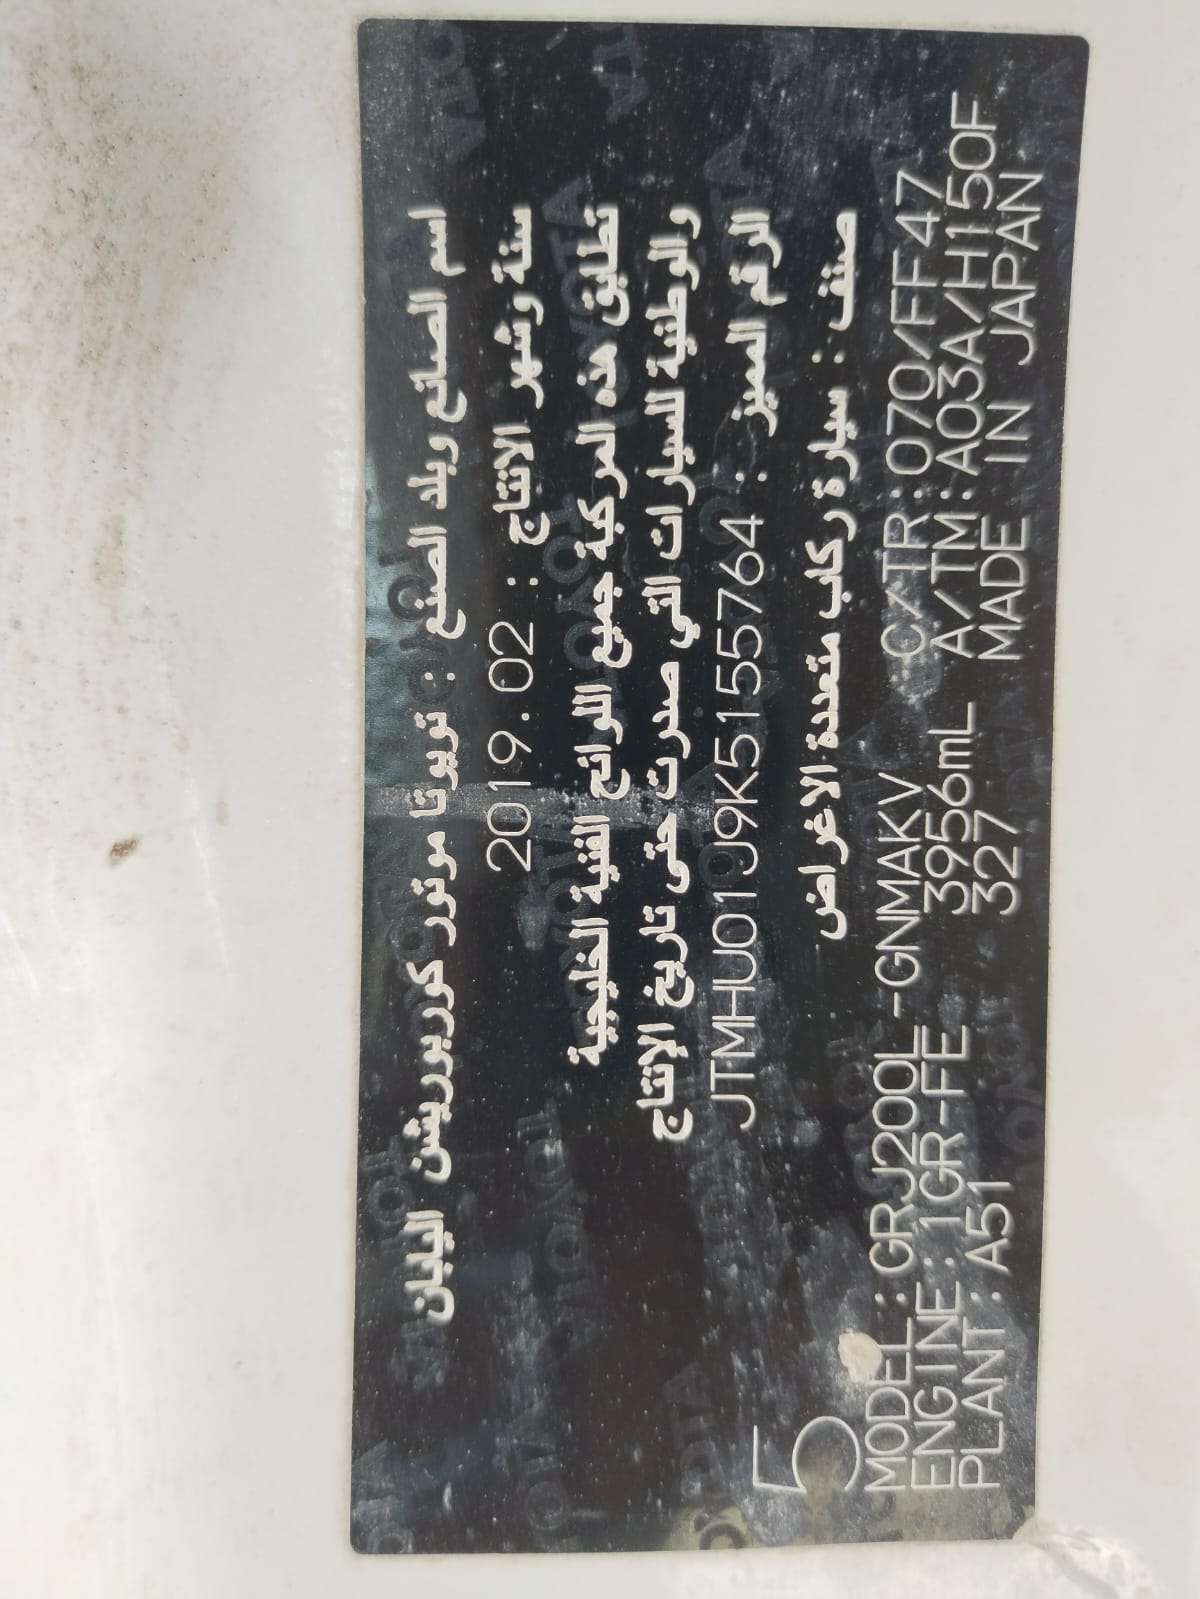 اسم الصانع وبلد الصنع : تويوتا موتور كوربوريشن اليابان
سنة وشهر الانتاج : 2019.02
تطابق هذه المركبة جميع اللوائح الفنية الخليجية
والوطنية للسيارات التي صدرت حتى تاريخ الإنتاج
الرقم المميز : JTMHU01J9K5155764
صنف : سيارة ركاب متعددة الاغراض
5
MODEL:GRJ200L-GNMAKV C/TR:070/FF47
ENGINE:1GR-FE 3956mL A/TM:A03A/H150F
PLANT:A51 327 MADE IN JAPAN